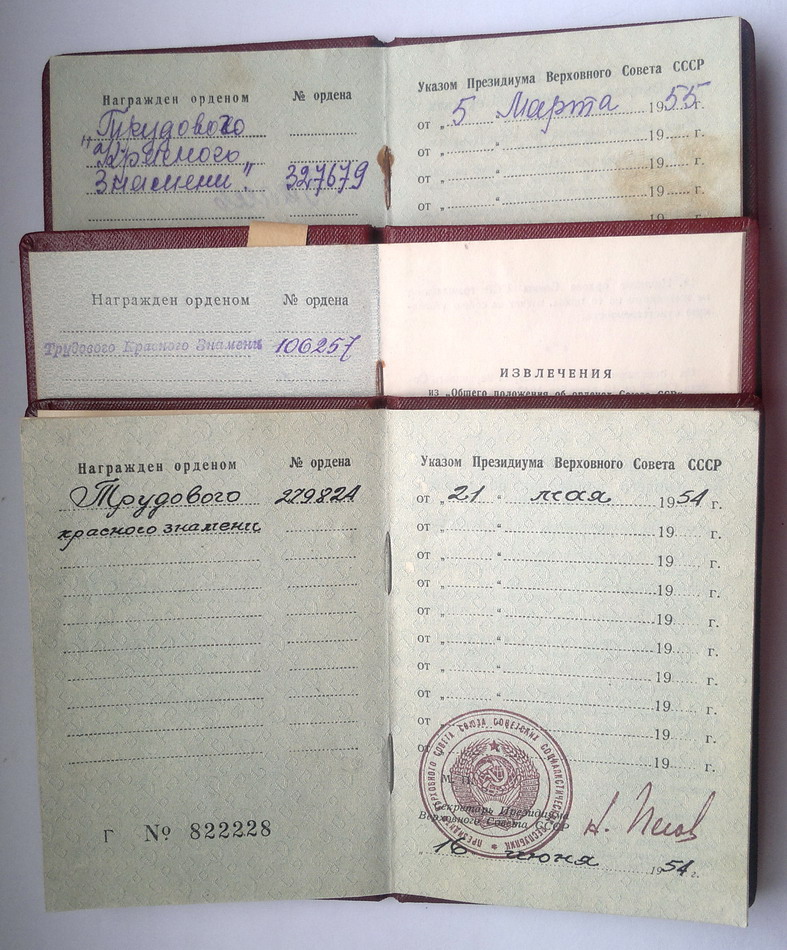 Награжден орденом № ордена
„Трудового
Красного
Знамени" 327679
Указом Президиума Верховного Совета СССР
от „ 5 " Марта 1955г.
от „ " 19 г.
от „ " 19 г.
от „ " 19 г.
Награжден орденом № ордена
Трудового Красного Знамени 106257
ИЗВЛЕЧЕНИЯ
из „Общего положения об орденах Союза ССР"
Награжден орденом № ордена
Трудового 279824
красного знамени
Указом Президиума Верховного Совета СССР
от „ 21 " мая 1954 г.
от „ " 19 г.
от „ " 19 г.
от „ " 19 г.
от „ " 19 г.
от „ " 19 г.
от „ " 19 г.
от „ " 19 г.
от „ 19 г.
от 19 г.
М. П.
Секретарь Президиума
Верховного Совета СССР
„ 16 " июня 1954 г.
Г № 822228
ПРЕЗИДИУМ ВЕРХОВНОГО СОВЕТА СОЮЗА СОВЕТСКИХ СОЦИАЛИСТИЧЕСКИХ РЕСПУБЛИК